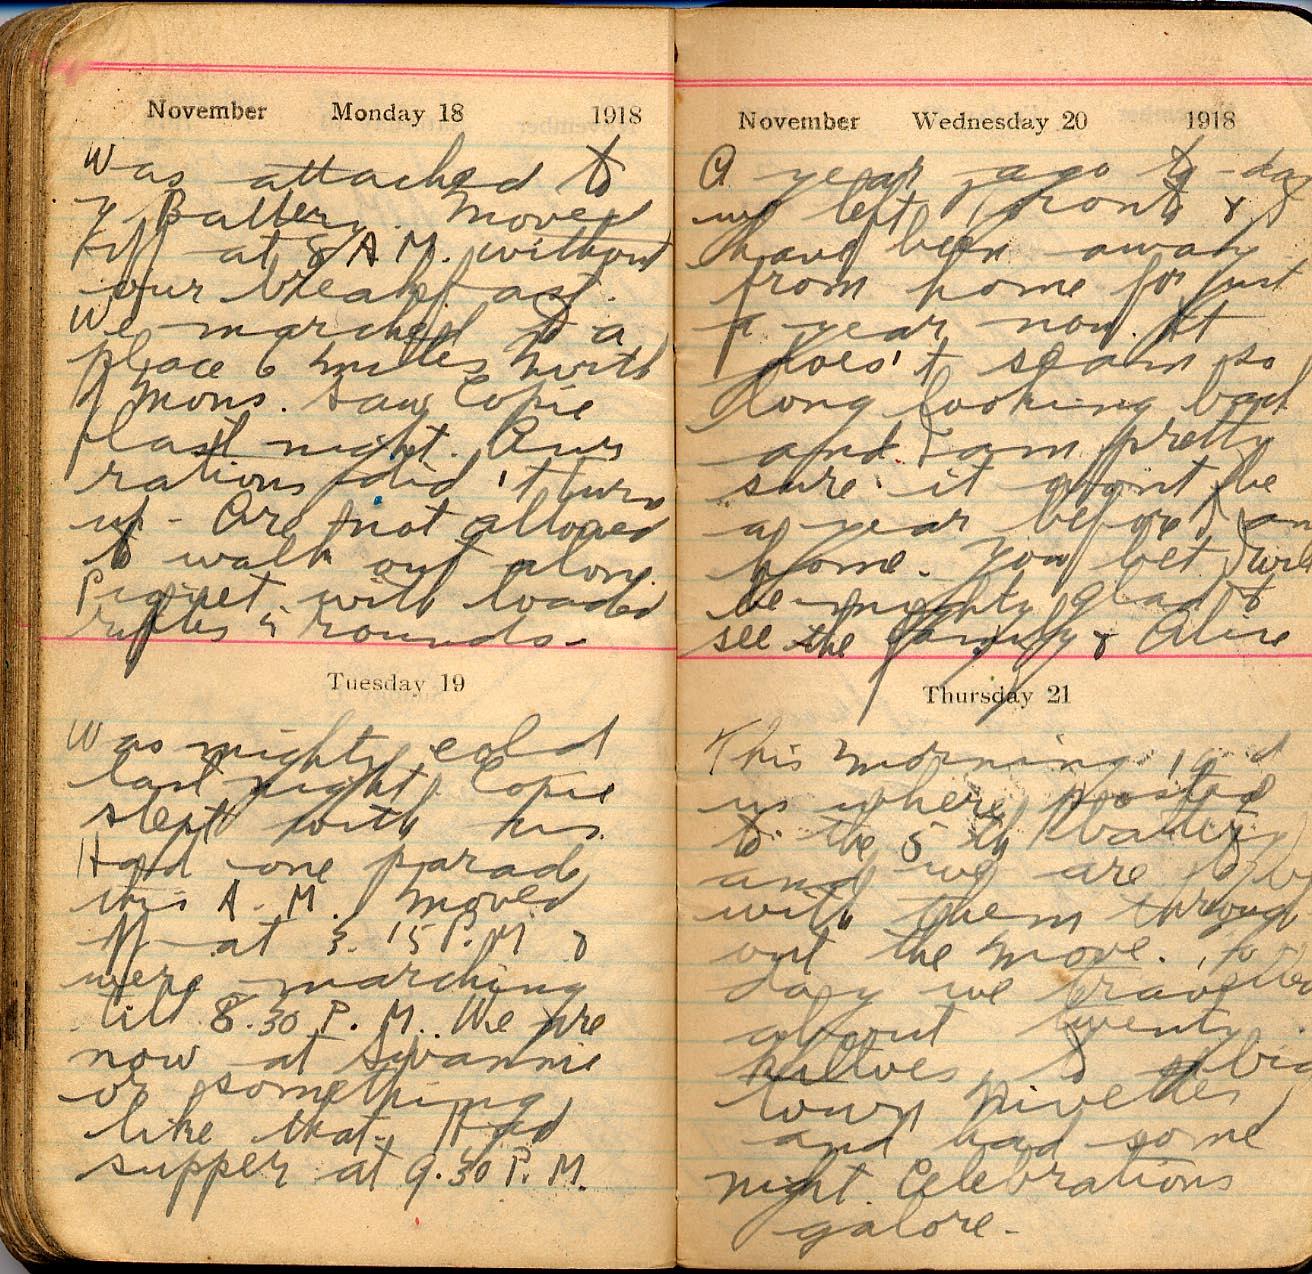 November Monday 18 1918
Was attached to
Battery. Moved
off at 8 A.M. without
our breakfast.
We marched to a
place 6 miles north
of Mons. Saw Copie
last night. Our
rations did't turn
up - Are not allowed
to walk out alone.
Picquet with loaded
rifles 5 rounds -
Tuesday 19
Was mighty cold
last night. Copie
slept with us.
Had one parade
this A.M. Moved
off at 3.15 P.M. &
were marching
till 8.30 P.M. We are
now at
or something
like that. Had
supper at 9.30 P.M.
November Wednesday 20 1918
A year ago to-day
we left Toronto & I
have been away
from home for just
a year now. It
does't seam so
long looking back
and I am pretty
sure it wont be
a year before I am
home. You bet I will
be mighty glad to
see the family & Alice
Thursday 21
This morning
us where posted
to the 5 th battery
and we are to be
with them through
out the move. To
day we travelled
about twenty
to a big
town Nivelles
and had some
night. Celebrations
galore -